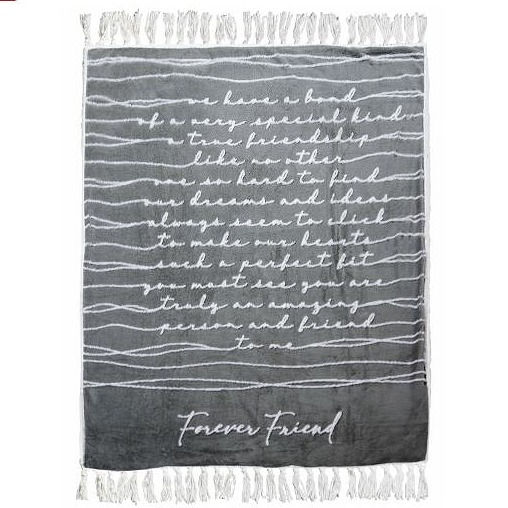 we have a bond
of a very special kind
a true friendship
like no other
one so hard to find
our dreams and ideas
always seem to click
to make our hearts
such a perfect fit
you must see you are
truly an amazing
person and friend
to me
Forever Friend